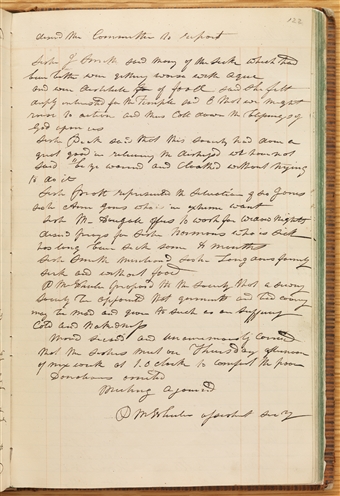 122
and the Committee to report
Sister J Smith said many of the sick which had
been better were getting worse with ague
and were destitute of food said she felt
deeply interested for the Temple said that we might
rouse to action and thus Call down the blessings of
God upon us
Sister Peck said that this Society had done a
great good in relieving the distressed we have not
said be ye warmed and Clothed without trying
to do it
Sister Scott represented the Situation of Sr Jones
Sister Ann Jones who is in extreme want
Sister M offers to work for Wave Nights
desired prayrs for Sister Normous who is Sick
has long been sick some 4 months
Sister Smith mentioned Sister family
sick and without food
P M Wheeler proposed to the Society that a sewing
Society be appointed that garments and
may be made and given to such as are suffering
Cold and Nakedness
Moved and Unanimously Carried
that the Sisters meet on Thursday afternoon
of next week at 1 O clock to comfort the poor
Donations
Meeting Ajourned
P M Wheeler assistant Secty